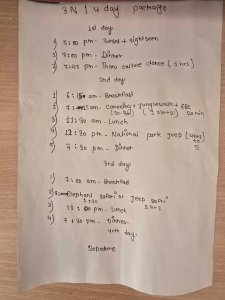 3N / 4 day package
1st day
1) 5:00 pm - Sunset + sightseen
2) 7:00 pm - Dinner
3) 7:45 pm - Tharu culture dance (1 hrs)
2nd day
1) 6: am - Breakfast
2) 7: am - Canoeing + junglewalk +
20 min
3) 11:30 am - Lunch
4) 12:30 pm - National park jeep
5
5) 7:30 pm - Dinner
3rd day
1) 7:00 am - Breakfast
2) Elephant safari or jeep
2 hrs
3) 12:00 pm - Lunch
4) 7:30 pm - Dinner
4rth day
Departure